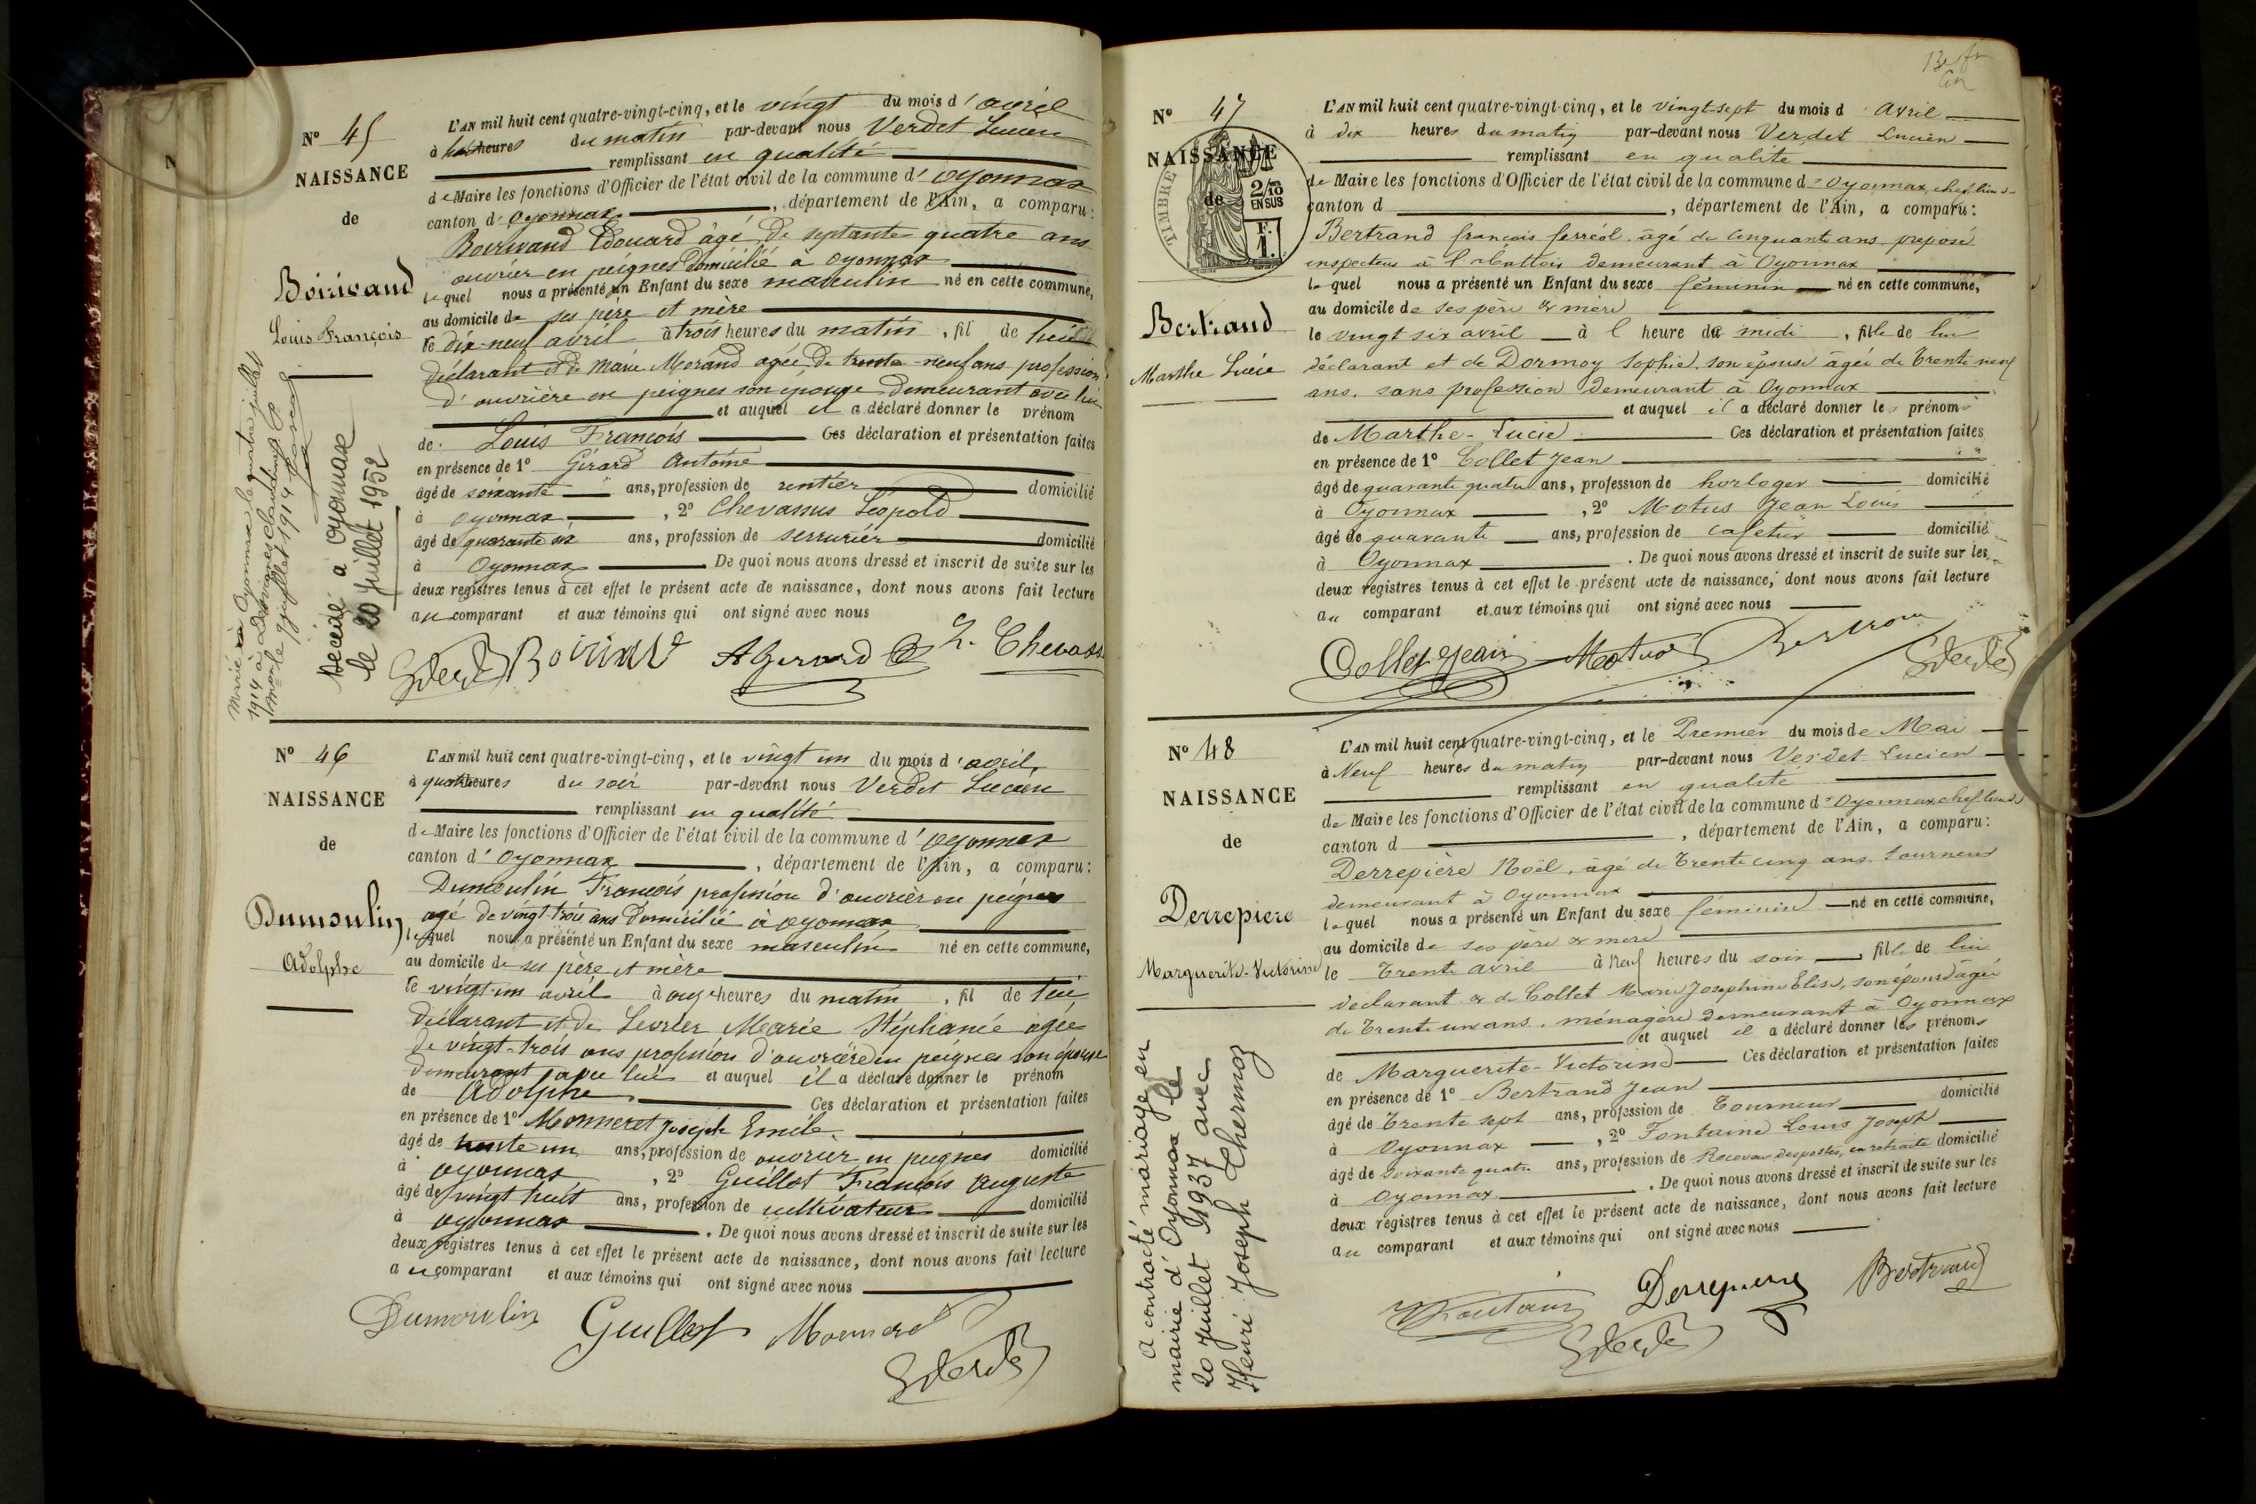 N° 45
NAISSANCE
de
Boirivand
Louis François
Marié à Oyonnax le quatre juillet
1914 à
Décédé à Oyonnax
le 20 juillet 1952
L'AN mil huit cent quatre-vingt-cinq, et le vingt du mois d'avril
à heures du matin par-devant nous Verdet Lucien
remplissant en qualité
de Maire les fonctions d'Officier de l'état civil de la commune d'Oyonnax
canton d'Oyonnax, département de l'Ain, a comparu:
Boirivand Edouard âgé de septante quatre ans
ouvrier en peignes domicilié à Oyonnax
lequel nous a présenté un Enfant du sexe masculin né en cette commune,
au domicile de ses père et mère
le dix-neuf avril à trois heures du matin, fil de lui
déclarant et de Marie Morand agée de trente-neuf ans profession
d'ouvrière en peignes son épouse demeurant avec lui
et auquel il a déclaré donner le prénom
de Louis François Ces déclaration et présentation faites
en présence de 1° Girard Antoine
âgé de soixante ans, profession de rentier domicilié
à Oyonnax, 2° Chevassus Léopold
âgé de quarante six ans, profession de serrurier domicilié
à Oyonnax De quoi nous avons dressé et inscrit de suite sur les
deux registres tenus à cet effet le présent acte de naissance, dont nous avons fait lecture
au comparant et aux témoins qui ont signé avec nous
A Girard L. Chevass
N° 46
NAISSANCE
de
Dumoulin
Adolphe
L'AN mil huit cent quatre-vingt-cinq, et le vingt un du mois d'avril,
à quatre heures du soir par-devant nous Verdet Lucien
remplissant en qualité
de Maire les fonctions d'Officier de l'état civil de la commune d'Oyonnax
canton d'Oyonnax, département de l'Ain, a comparu:
Dumoulin François profession d'ouvrier en peignes
agé de vingt-trois ans domicilié à Oyonnax
lequel nous a présenté un Enfant du sexe masculin né en cette commune,
au domicile de ses père et mère
le vingt-un avril à onze heures du matin, fil de lui,
déclarant et de Levrier Marie Stéphanie agée
de vingt-trois ans profession d'ouvrière en peignes son épouse
demeurant avec lui et auquel il a déclaré donner le prénom
de Adolphe. Ces déclaration et présentation faites
en présence de 1° Monneret Joseph Emile.
âgé de trente un ans, profession de ouvrier en peignes domicilié
à Oyonnax, 2° Guillot François Auguste
âgé de vingt huit ans, profession de cultivateur domicilié
à Oyonnax. De quoi nous avons dressé et inscrit de suite sur les
deux registres tenus à cet effet le présent acte de naissance, dont nous avons fait lecture
au comparant et aux témoins qui ont signé avec nous
Dumoulin Guillot Monneret
N° 47
NAISSANCE
de
TIMBRE
2/10
EN SUS
F.
1.
Bertrand
Marthe Lucie
L'AN mil huit cent quatre-vingt-cinq, et le vingt-sept du mois d Avril
à dix heures du matin par-devant nous Verdet Lucien
remplissant en qualité
de Maire les fonctions d'Officier de l'état civil de la commune d'Oyonnax, chef lieu de
canton d, département de l'Ain, a comparu:
Bertrand françois ferréol âgé de cinquante ans preposé
inspecteur à l'abattoir demeurant à Oyonnax
lequel nous a présenté un Enfant du sexe féminin né en cette commune,
au domicile de ses père & mère
le vingt six avril à l heure de midi, fille de lui
déclarant et de Dormoy Sophie, son épouse âgée de trente neuf
ans, sans profession demeurant à Oyonnax
et auquel il a déclaré donner les prénoms
de Marthe-Lucie Ces déclaration et présentation faites
en présence de 1° Collet Jean
âgé de quarante quatre ans, profession de horloger domicilié
à Oyonnax, 2° Motus Jean Louis
âgé de quarante ans, profession de cafetier domicilié
à Oyonnax. De quoi nous avons dressé et inscrit de suite sur les
deux registres tenus à cet effet le présent acte de naissance, dont nous avons fait lecture
au comparant et aux témoins qui ont signé avec nous
Collet Jean Motus Bertrand
N° 48
NAISSANCE
de
Derrepiere
Marguerite-Victorine
A contracté mariage en
mairie d'Oyonnax le
20 juillet 1937 avec
Henri Joseph Chermoz
L'AN mil huit cent quatre-vingt-cinq, et le Premier du mois de Mai
à Neuf heures du matin par-devant nous Verdet Lucien
remplissant en qualité
de Maire les fonctions d'Officier de l'état civil de la commune d'Oyonnax chef lieu de
canton d, département de l'Ain, a comparu:
Derrepière Noël, âgé de trente cinq ans tourneur
demeurant à Oyonnax
lequel nous a présenté un Enfant du sexe féminin né en cette commune,
au domicile de ses père & mère
le trente avril à neuf heures du soir, fille de lui
déclarant & de Collet Marie Josephine Elise, son épouse âgée
de trente un ans, ménagère demeurant à Oyonnax
et auquel il a déclaré donner les prénoms
de Marguerite-Victorine Ces déclaration et présentation faites
en présence de 1° Bertrand Jean
âgé de trente sept ans, profession de tourneur domicilié
à Oyonnax, 2° Fontaine Louis Joseph
âgé de soixante quatre ans, profession de Receveur des postes, en retraite domicilié
à Oyonnax. De quoi nous avons dressé et inscrit de suite sur les
deux registres tenus à cet effet le présent acte de naissance, dont nous avons fait lecture
au comparant et aux témoins qui ont signé avec nous
Fontaine Derrepierre Bertrand